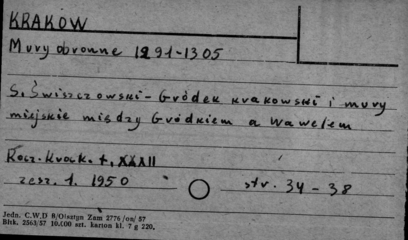 KRAKÓW
Mury obronne 1291-1305
S. Świszczowski - Gródek krakowski i mury
miejskie między Gródkiem a Wawelem
Rocz. Krak. t. XXXII
zesz. 1. 1950 str. 34 - 38
Jedn. C.W.D 8/Olsztyn Zam 2776/on/57
Blok. 2563/57 10.000 szt. karton kl. 7 g 220.